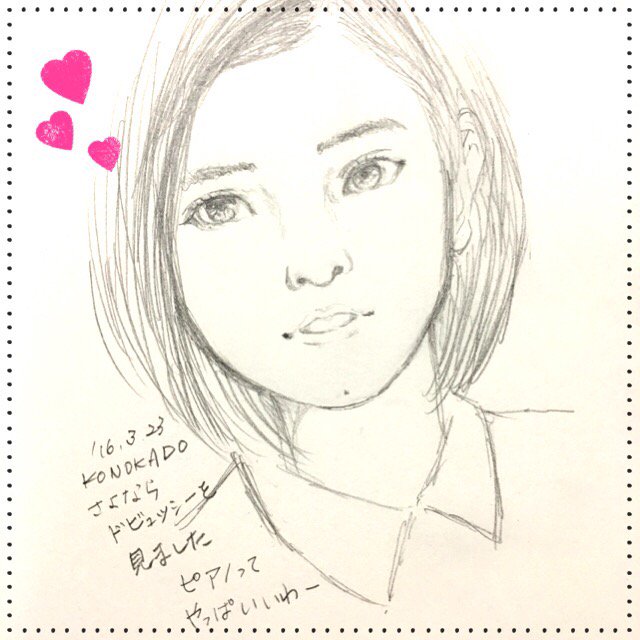 '16.3.23
KONOKADO
さよなら
ドビュッシーを
見ました
ピアノって
やっぱいいわー